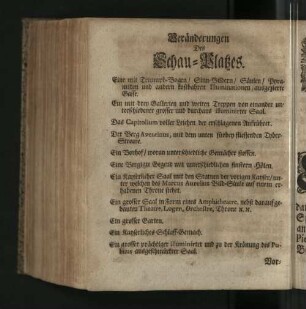 Veränderungen
Des
Schau-Platzes.
Eine mit Triumph-Bogen / Sinn-Bildern / Säulen / Pyra-
miden und andern kostbahren Illuminationen ausgezierte
Gasse.
Ein mit drey Gallerien und zweien Treppen von einander un-
terschiedener grosser und durchaus illuminirter Saal.
Das Capitolium voller Leichen der erschlagenen Aufrührer.
Der Berg Aventinus, mit dem unten fürbey fliessenden Tyber-
Strome.
Ein Vorhof / woran unterschiedliche Gemächer stossen.
Eine Bergigte Gegend mit unterschiedlichen finstern Hölen.
Ein Kayserlicher Saal mit den Statuen der vorigen Kayser / un-
ter welchen des Marcus Aurelius Bild-Säule auf einem er-
habenen Throne stehet.
Ein grosser Saal in Form eines Amphitheatri, nebst darauf ge-
bauten Theatro, Logen, Orchestre, Throne &c. &c.
Ein grosser Garten.
Ein Kayserliches Schlaff-Gemach.
Ein grosser prächtiger illuminirter und zu der Krönung des Per-
tinax ausgeschmückter Saal.
Vor-